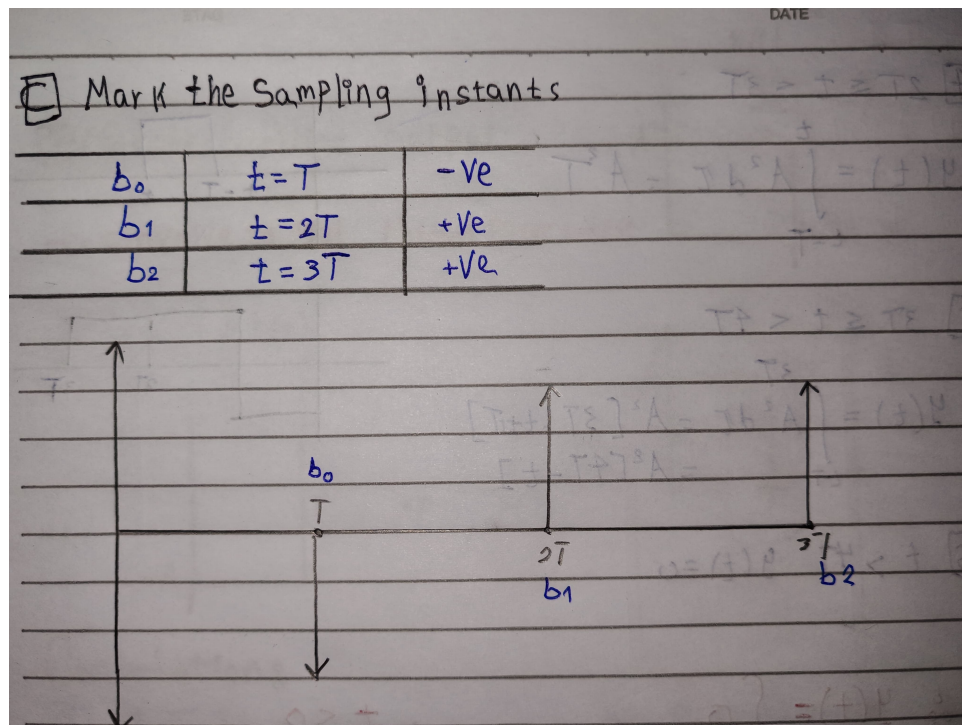 DATE
C Mark the Sampling instants
b₀ t=T -ve
b1 t=2T +ve
b2 t=3T +ve
b₀
T
2T
3T
b1
b2